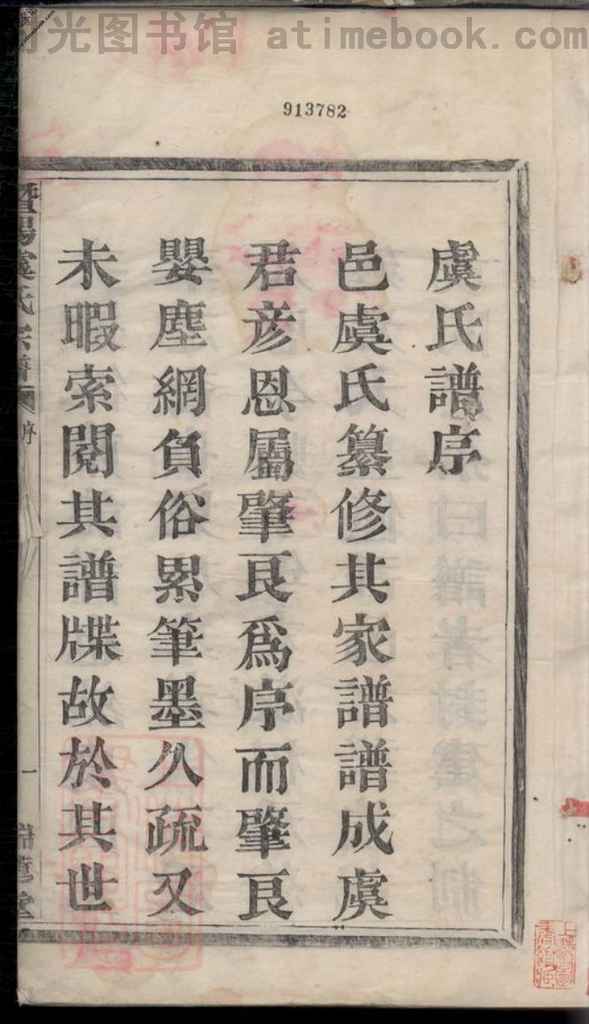 时光图书馆 atimebook.com
913782
虞氏譜序
邑虞氏纂修其家譜譜成虞
君彦恩屬肇艮爲序而肇艮
嬰塵網負俗累筆墨久疏又
未暇索閱其譜牒故於其世
暨陽虞氏宗譜
序
一